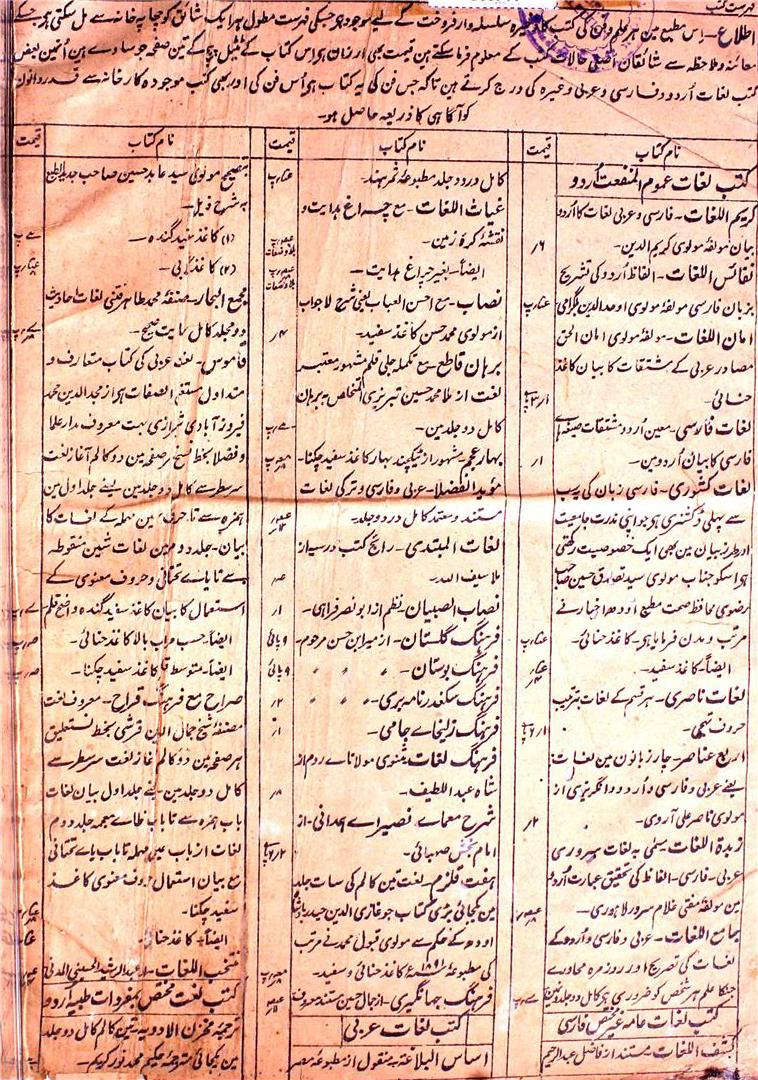 فہرست کتب
اطلاع۔ اس مطبع مین ہر علم و فن کی کتب کا ذخیرہ سلسلہ وار فروخت کے لیے موجود ہے جسکی فہرست مطول ہر ایک شائق کو چھاپہ خانہ سے مل سکتی ہے جسکے
معائنہ و ملاحظہ سے شائقان اصلی حالات کتب کے معلوم فرما سکتے ہین قیمت بھی ارزان ہے اس کتاب کے ٹیٹل پیج کے تین صفحہ جو سادے ہین اُنمین بعض
کتب لغات اُردو و فارسی و عربی وغیرہ کی درج کرتے ہین تاکہ جس فن کی یہ کتاب ہے اُس فن کی اور بھی کتب موجودہ کارخانہ سے قدردانون
کو آگاہی کا ذریعہ حاصل ہو۔
نام کتاب
قیمت
کتب لغات عموم المنفعت اُردو
کریم اللغات۔ فارسی و عربی لغات کا اُردو
بیان مولفۂ مولوی کریم الدین۔
۶ر
نفائس اللغات۔ الفاظ اُردو کی تشریح
بزبان فارسی مولفۂ مولوی اوحد الدین بلگرامی
امان اللغات۔ مولفۂ مولوی امان الحق
مصادر عربی کے مشتقات کا بیان کاغذ
حنائی۔
لغات فارسی۔ معین اُردو مشتقات صیغہ ہاے
فارسی کا بیان اُردو مین۔
۱ر
لغات کشوری۔ فارسی زبان کی یہ سب
سے پہلی ڈکشنری ہے جو اپنی ندرت جامعیت
اور طرز بیان مین بھی ایک خصوصیت رکھتی
ہے اسکو جناب مولوی سید تصدق حسین صاحب
رضوی محافظ صحت مطبع اودھ اخبار نے
مرتب و مدون فرمایا ہے۔ کاغذ حنائی۔
ایضاً۔ کاغذ سفید۔
لغات ناصری۔ ہر قسم کے لغات بترتیب
حروف تہجی۔
اربع عناصر۔ چار زبانون مین لغات
یعنے عربی و فارسی و اُردو و انگریزی از
مولوی ناصر علی آروی۔
۲ر
زبدۃ اللغات۔ مسمٰی بہ لغات سروری
عربی۔ فارسی۔ الفاظ کی تحقیق عبارت اُردو
مین مولفۂ مفتی غلام سرور لاہوری۔
جامع اللغات۔ عربی و فارسی و اُردو کے
لغات کی تصریح اور روزمرہ محاورے
جنکا علم ہر شخص کو ضروری ہے کامل دو جلد
کتب لغات عامہ غیر مختص فارسی
کشف اللغات۔ مستند از فاضل عبد الرحیم
نام کتاب
قیمت
کامل در دو جلد مطبوعۂ ثمر ہند۔
غیاث اللغات۔ مع چراغ ہدایت و
نقشۂ کرۂ زمین۔
ایضاً۔ بغیر چراغ ہدایت۔
نصاب۔ مع احسن العباب یعنی شرح لاجواب
از مولوی محمد حسن کاغذ سفید۔
۴ر
برہان قاطع۔ مع تکملہ جلی قلم مشہور معتبر
لغت از ملا محمد حسین تبریزی المتخلص بہ برہان
کامل دو جلد مین۔
بہار عجم۔ مشہور از ٹیکچند بہار کاغذ سفید چکنا۔
مؤید الفضلا۔ عربی و فارسی و ترکی لغات
مستند و معتمد کامل در دو جلد۔
لغات المبتدی۔ رائج کتب درسیہ از
ملا سیف اللہ۔
نصاب الصبیان۔ نظم از ابو نصر فراہی۔
۱ر
فرہنگ گلستان۔ از میر ابن حسن مرحوم۔
۹ پائی
فرہنگ بوستان۔ ״ ״ ״
۹ پائی
فرہنگ سکندرنامہ بری۔ ״ ״
۲ر
فرہنگ زلیخاے جامی۔
۱ر
فرہنگ لغات مثنوی مولاناے روم از
شاہ عبد اللطیف۔
۸ر
شرح معماے نصیراے ہمدانی۔ از
امام بخش صہبائی۔
ہفت قلزم۔ لغت تین کالم کی سات جلد
مین یکجائی بڑی کتاب جو غازی الدین حیدر بادشاہ
اودھ کے حکم سے مولوی قبول محمد نے مرتب
کی مطبوعۂ ۱۸۹۱ء کاغذ حنائی و سفید۔
فرہنگ جہانگیری۔ از جمال حسین مستند معروف
کتب لغات عربی
اساس البلاغۃ۔ منقول از مطبوعۂ مصر
نام کتاب
قیمت
بتصحیح مولوی سید عابد حسین صاحب جدید الطبع
بہ شرح ذیل۔
(۱) کاغذ سفید گندہ۔
(۲) کاغذ
مجمع البحار۔ مصنفۂ محمد طاہر فتنی لغات احادیث
دو مجلد کامل نہایت صحیح۔
قاموس۔ لغت عربی کی کتاب متعارف و
متداول مستغنی الصفات ہے از مجد الدین محمد
فیروزآبادی شیرازی بہت معروف مدار علما
و فضلا بخط نسخ ہر صفحہ مین دو کالم آغاز لغت
سر سطر سے کامل دو جلد مین یعنے جلد اول مین
ہمزہ سے تا حرف سین مہملہ کے لغات کا
بیان۔ جلد دوم مین لغات شین منقوطہ
سے تا یاے تحتانی و حروف معنوی کے
استعمال کا بیان کاغذ سفید گندہ واضح قلم
ایضاً۔ حسب مراتب بالا کاغذ حنائی۔
ایضاً۔ متوسط قلم کاغذ سفید چکنا۔
صراح مع فرہنگ قراح۔ معروف لغت
مصنفۂ شیخ جمال الدین قرشی بخط نستعلیق
ہر صفحہ مین دو کالم آغاز لغت سر سطر سے
کامل دو جلد مین یعنے جلد اول بیان لغات
باب ہمزہ سے تا باب ظاے معجمہ جلد دوم
لغات از باب عین مہملہ تا باب یاے تحتانی
مع بیان استعمال حروف معنوی کاغذ
سفید چکنا۔
ایضاً۔ کاغذ حنائی۔
منتخب اللغات۔ ملا عبد الرشید الحسینی المدنی
کتب لغت مختص بمفردات طبیہ اُردو
ترجمہ مخزن الادویہ۔ تین کالم کامل دو جلد
مین یکجائی مترجمۂ حکیم محمد نور کریم۔